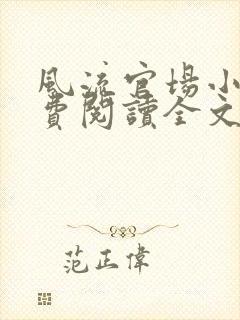 風流官場小
費閱讀全文
范正偉